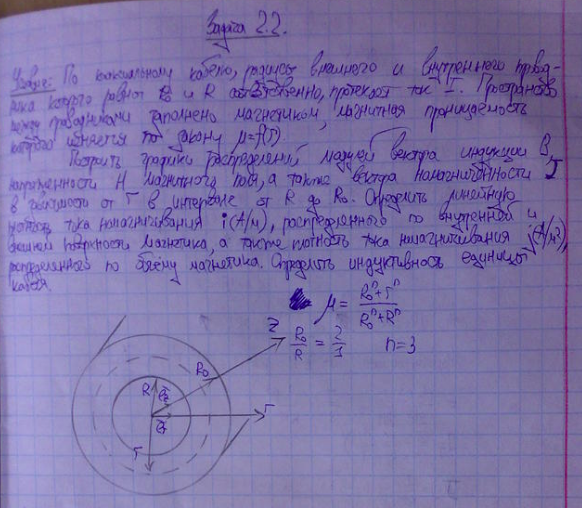 Задача 2.2.
Условие: По коаксиальному кабелю, радиусы внешнего и внутреннего провод-
ника которого равны R₀ и R соответственно, протекает ток I. Пространство
между проводниками заполнено магнетиком, магнитная проницаемость
которого меняется по закону μ=f(r).
Построить графики распределений модулей вектора индукции B,
напряженности H магнитного поля, а также вектора намагниченности J
в зависимости от r в интервале от R до R₀. Определить линейную
плотность тока намагничивания i(А/м), распределенного по внутренней и
внешней поверхности магнетика, а также плотность тока намагничивания j(А/м²),
распределенного по объему магнетика. Определить индуктивность единицы
кабеля.
μ = (R₀ⁿ+rⁿ)/(R₀ⁿ+Rⁿ)
R₀/R = 2/1 n=3
z
R₀
R
r
r